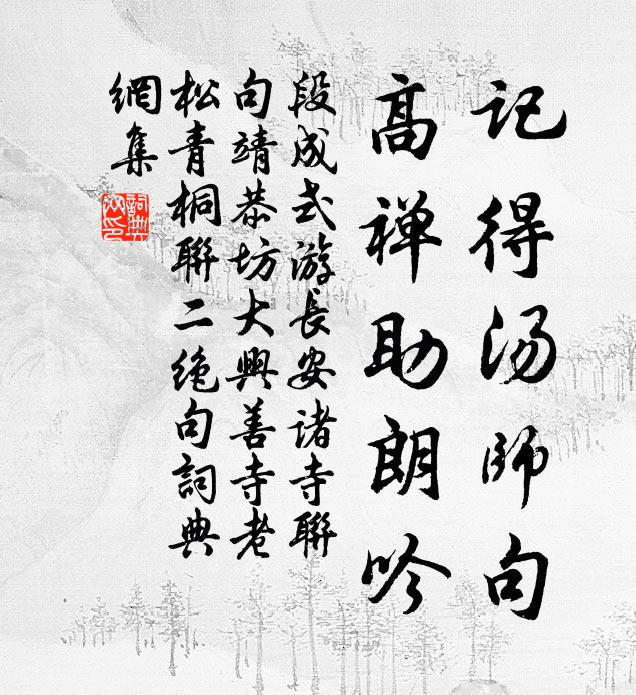 记得汤师句
高禅助朗吟
段成式游长安诸寺聯
句靖恭坊大興善寺老
松青桐聯二绝句詞典
網集
詞典網印